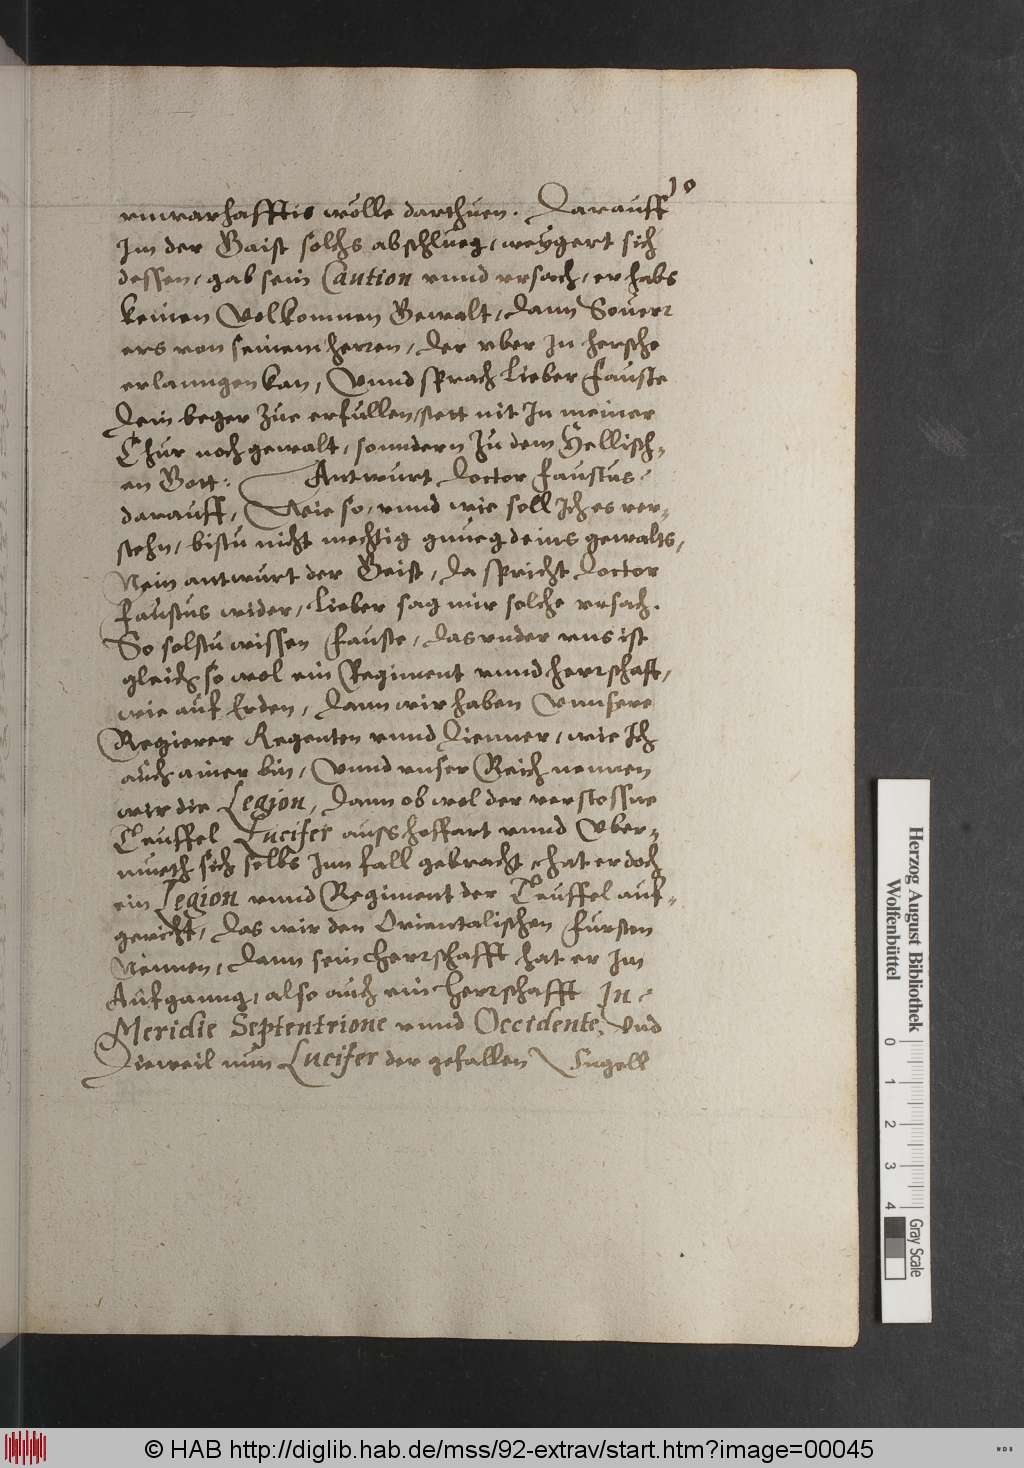 10
vnwarhafftis wölle darthuen. Darauff
Im der Gaist solchs abschlueg, weygert sich
dessen, gab sein Caution vnnd vrsach, er habs
keinen Volkomnen Gewalt, dann Souerr
ers von seinem herren, der vber In hersche
erlanngen kan, Vnnd sprach Lieber Fauste
dein beger zue erfullen, stett nit In meiner
Chur noch gewalt, sonndern Zu dem Hellisch-
en Gott: Antwurt Doctor Faustus
darauff, Wie so, vnnd wie soll Ich es ver-
stehn, bistu nicht mechtig gnueg deins gewalts,
Nein antwurt der Geist, Da spricht Doctor
Faustus wider, Lieber sag mir solche vrsach.
So solstu wissen Fauste, das vnder vns ist
gleich so wol ein Regiment vnnd herrschafft,
wie auf Erden, dann wir haben Vnnsere
Regierer Regenten vnnd Dienner, wie Ich
auch ainer bin, Vnnd vnser Reich nennen
wir die Legion, dann ob wol der verstossne
Teuffel Lucifer auss hoffart vnnd Vber-
mueth sich selbs Inn fall gebracht, hat er doch
ein Legion vnnd Regiment der Teuffel auf-
gericht, das wir den Orientalischen Fursten
Nennen, dann sein herrschafft hat er Im
Aufganng, also auch ein herrschafft In
Meridie Septentrione vnnd Occidente, Vnd
Dieweil nun Lucifer der gefallen Engell
Herzog August Bibliothek
Wolfenbüttel
0 1 2 3 4
Gray Scale
© HAB http://diglib.hab.de/mss/92-extrav/start.htm?image=00045
WDB